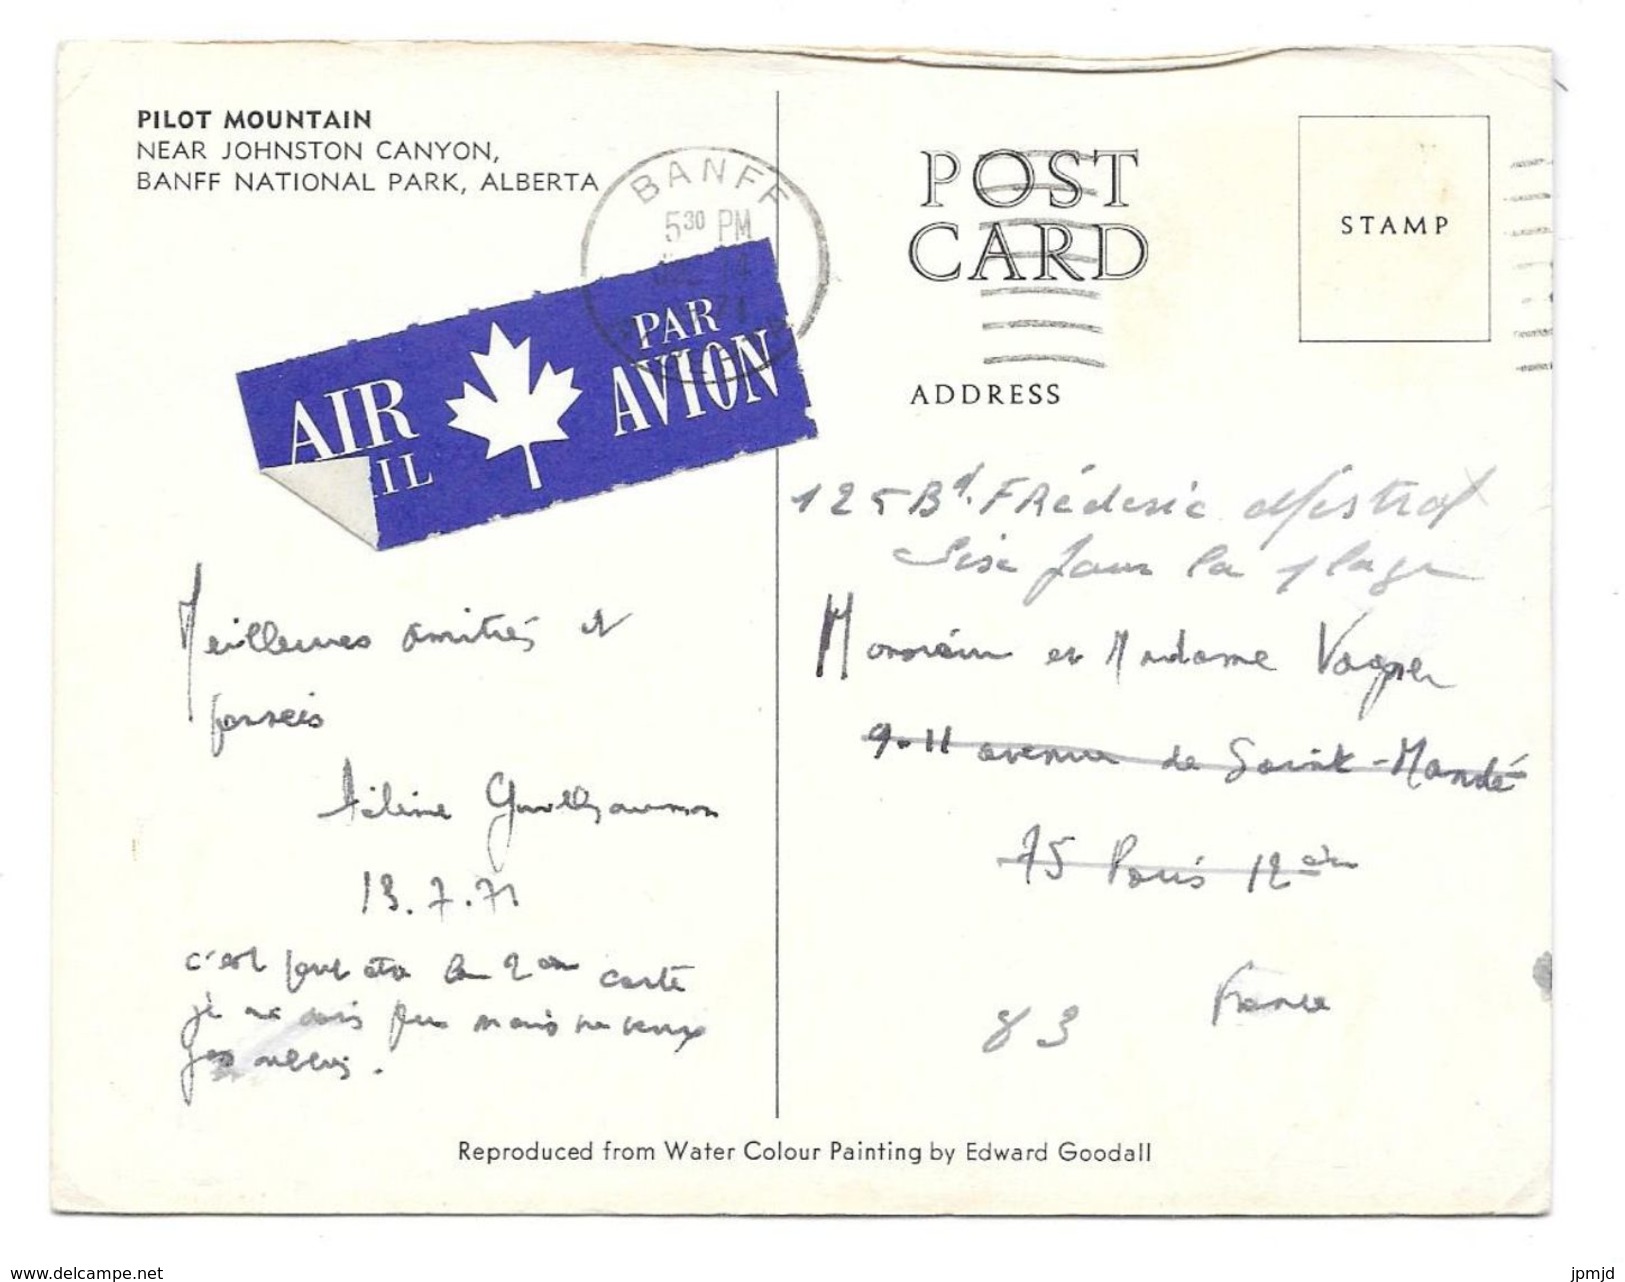 PILOT MOUNTAIN
NEAR JOHNSTON CANYON,
BANFF NATIONAL PARK, ALBERTA
BANFF
5 30 PM
14
71
AIR
IL
PAR
AVION
Meilleures amitiés et
pensées
Hélène
13.7.71
c'est peut être la 2ème carte
je ne sais plus mais ne veux
pas
POST
CARD
STAMP
ADDRESS
125 Bd. FRédéric Mistral
la plage
Monsieur et Madame Vagner
9-11 avenue de Saint-Mandé
75 Paris 12ème
France
83
Reproduced from Water Colour Painting by Edward Goodall
www.delcampe.net
jpmjd